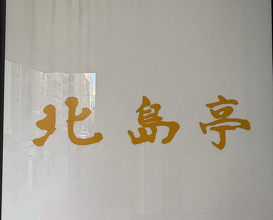 北島亭